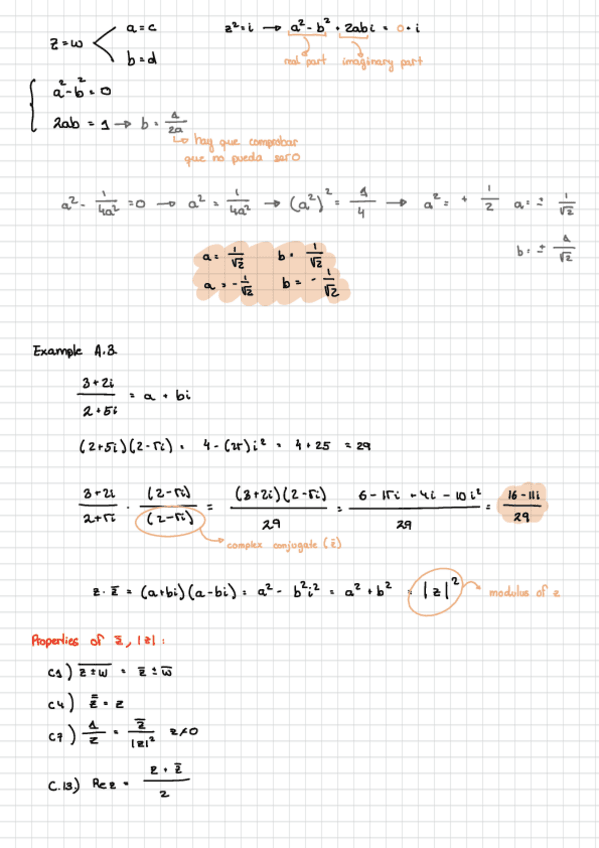 z = w
a = c
b = d
z² = i → a² - b² + 2abi = 0 + i
real part imaginary part
a² - b² = 0
2ab = 1 → b = 1/2a
↳ hay que comprobar
que no pueda ser 0
a² - 1/4a² = 0 → a² = 1/4a² → (a²)² = 1/4 → a² = + 1/2 a = ± 1/√2
b = ± 1/√2
a = 1/√2 b = 1/√2
a = - 1/√2 b = - 1/√2
Example A.3
3+2i / 2+5i = a + bi
(2+5i)(2-5i) = 4 - (25)i² = 4 + 25 = 29
3+2i / 2+5i · (2-5i) / (2-5i) = (3+2i)(2-5i) / 29 = 6 - 15i + 4i - 10i² / 29 = 16 - 11i / 29
complex conjugate (z̄)
z · z̄ = (a+bi)(a-bi) = a² - b²i² = a² + b² = |z|² → modulus of z
Properties of z̄, |z| :
C1) \overline{z ± w} = z̄ ± w̄
C4) z̿ = z
C7) 1/z = z̄/|z|² z≠0
C.13) Re z = z + z̄ / 2